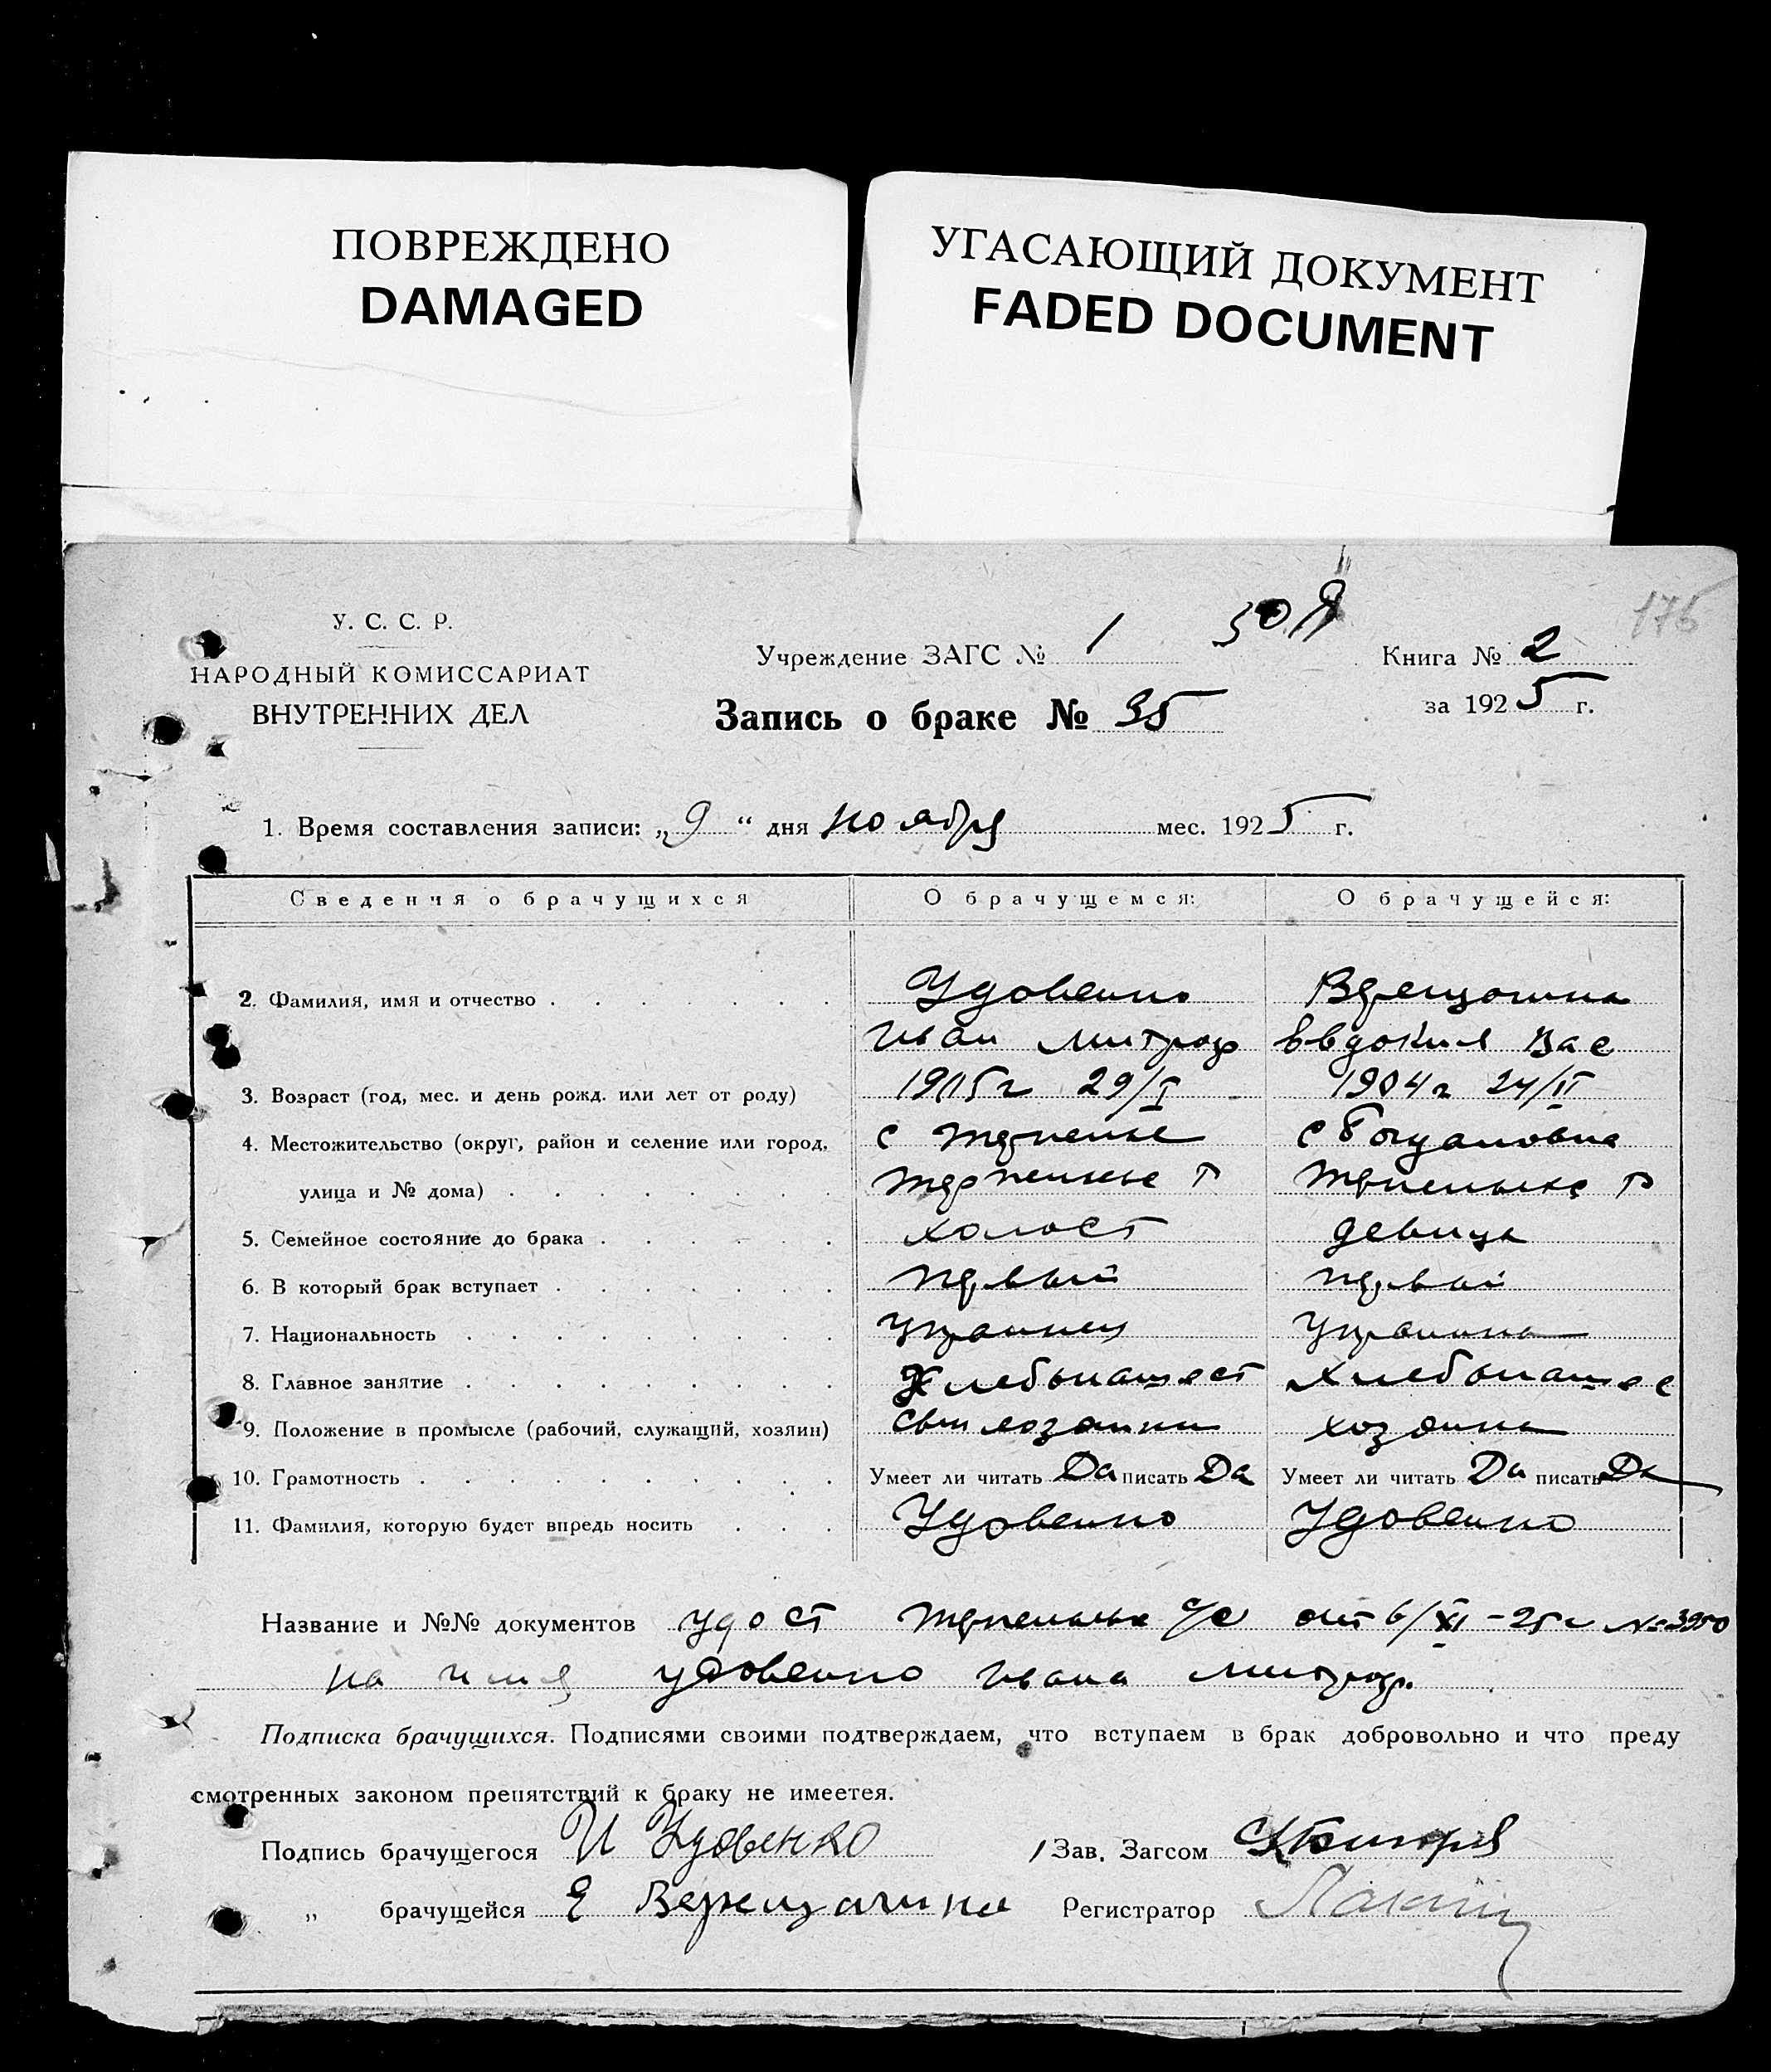 ПОВРЕЖДЕНО
DAMAGED
УГАСАЮЩИЙ ДОКУМЕНТ
FADED DOCUMENT
176
У. С. С. Р.
НАРОДНЫЙ КОМИССАРИАТ
ВНУТРЕННИХ ДЕЛ
Учреждение ЗАГС № 1
Книга № 2
за 1925 г.
Запись о браке № 35
1. Время составления записи: „9“ дня ноября мес. 1925 г.
Сведения о брачущихся О брачущемся: О брачущейся:
2. Фамилия, имя и отчество Удовенко Верещагина
Иван Митроф Евдокия Вас
3. Возраст (год, мес. и день рожд. или лет от роду) 29/I 1904 г 24/II
4. Местожительство (округ, район и селение или город, с Терпенье с Богдановка
улица и № дома) Терпеньев Р Терпеньевс Р
5. Семейное состояние до брака холост девица
6. В который брак вступает первый первый
7. Национальность Украинец Украинка
8. Главное занятие Хлебопашест Хлебопашес
9. Положение в промысле (рабочий, служащий, хозяин) хозяина
10. Грамотность Умеет ли читать Да писать Да Умеет ли читать Да писать Да
11. Фамилия, которую будет впредь носить Удовенко Удовенко
Название и №№ документов удост Терпеньев с/с от 6/XI-25 г №3950
на имя Удовенко Ивана Митроф.
Подписка брачущихся. Подписями своими подтверждаем, что вступаем в брак добровольно и что преду
смотренных законом препятствий к браку не имеетея.
Подпись брачущегося И Удовенко Зав. Загсом
„ брачущейся Е Верещагина Регистратор